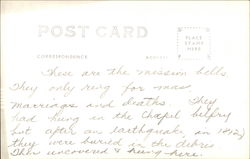 POST CARD
CORRESPONDENCE
ADDRESS
PLACE
STAMP
HERE
These are the mission bells.
They only ring for mass,
marriages and deaths. They
had hung in the Chapel belfry
but after an Earthquake, in 1812,
they were buried in the debres.
Then uncovered & hung here.